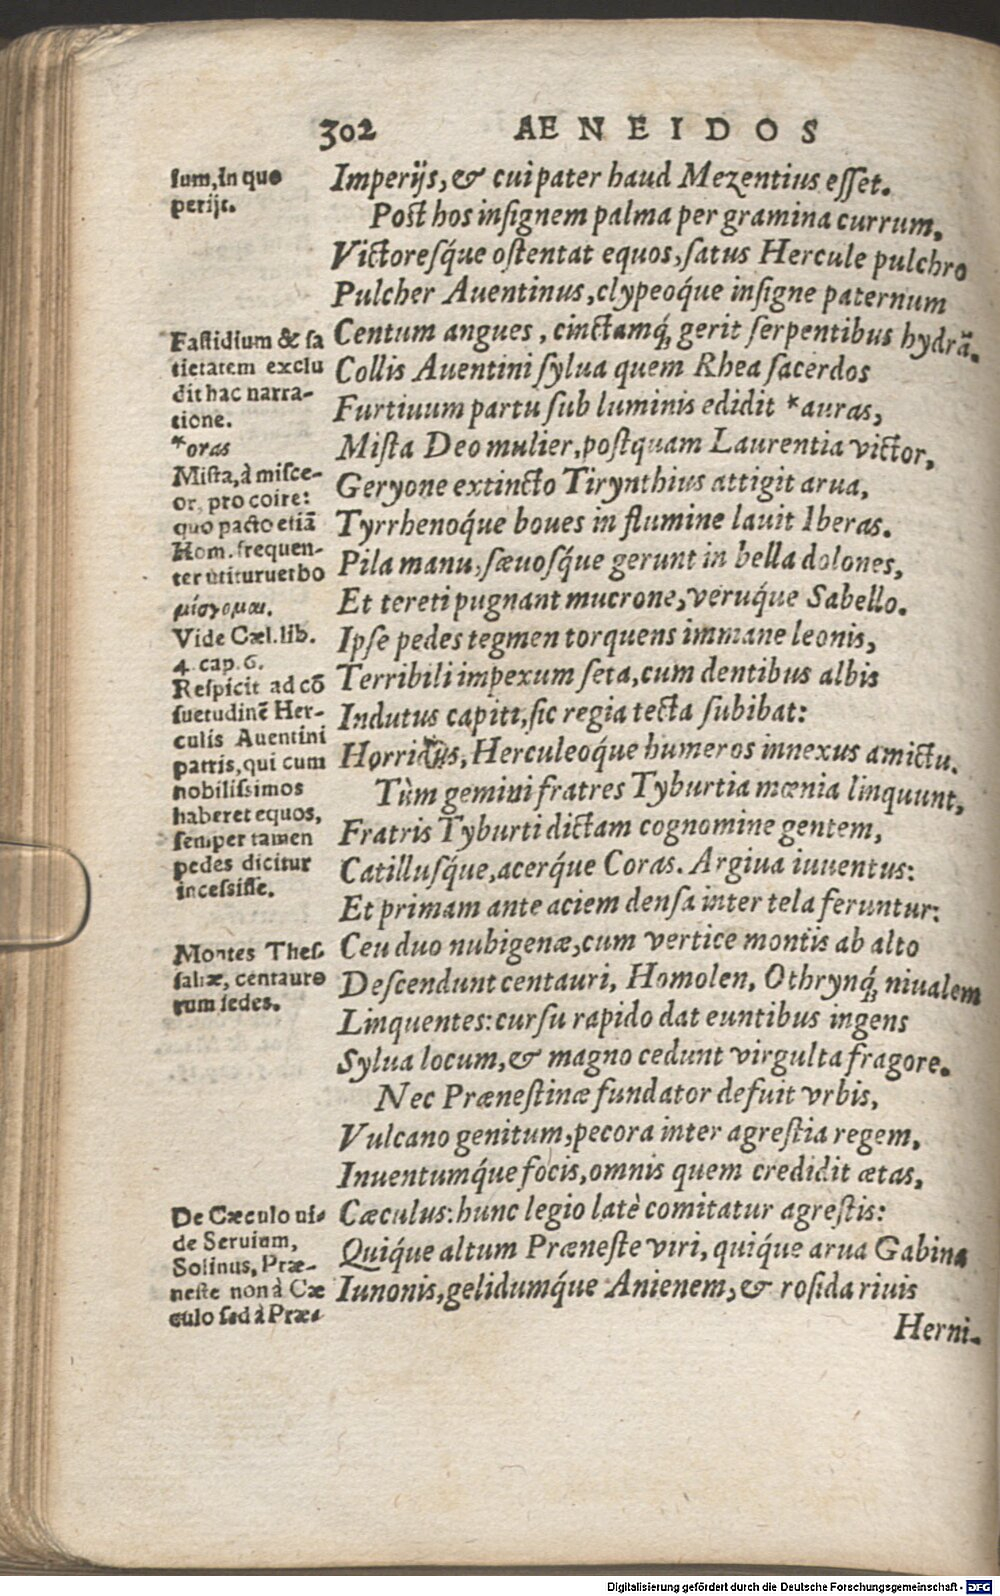 302 AENEIDOS
sum, in quo
perijt.
Imperijs, & cui pater haud Mezentius esset.
Post hos insignem palma per gramina currum,
Victoresq́ue ostentat equos, satus Hercule pulchro
Pulcher Auentinus, clypeoq́ue insigne paternum
Centum angues, cinctamq́; gerit serpentibus hydrã.
Collis Auentini sylua quem Rhea sacerdos
Furtiuum partu sub luminis edidit *auras,
Mista Deo mulier, postquam Laurentia victor,
Geryone extincto Tirynthius attigit arua,
Tyrrhenoq́ue boues in flumine lauit Iberas.
Pila manu, sæuosq́ue gerunt in bella dolones,
Et tereti pugnant mucrone, veruq́ue Sabello.
Ipse pedes tegmen torquens immane leonis,
Terribili impexum seta, cum dentibus albis
Indutus capiti, sic regia tecta subibat:
Horridus, Herculeoq́ue humeros innexus amictu.
Tùm gemini fratres Tyburtia mœnia linquunt,
Fratris Tyburti dictam cognomine gentem,
Catillusq́ue, acerq́ue Coras. Argiua iuuentus:
Et primam ante aciem densa inter tela feruntur:
Ceu duo nubigenæ, cum vertice montis ab alto
Descendunt centauri, Homolen, Othrynq́; niualem
Linquentes: cursu rapido dat euntibus ingens
Sylua locum, & magno cedunt virgulta fragore.
Nec Prænestinæ fundator defuit vrbis,
Vulcano genitum, pecora inter agrestia regem,
Inuentumq́ue focis, omnis quem credidit ætas,
Cæculus: hunc legio latè comitatur agrestis:
Quiq́ue altum Præneste viri, quiq́ue arua Gabinæ
Iunonis, gelidumq́ue Anienem, & rosida riuis
Herni-
Fastidium & sa
tietatem exclu
dit hac narra-
tione.
*oras
Mista, à misce-
or, pro coire:
quo pacto etiã
Hom. frequen-
ter utitur uerbo
μίσγομαι.
Vide Cæl. lib.
4. cap. 6.
Respicit ad cõ
suetudinẽ Her-
culis Auentini
patris, qui cum
nobilissimos
haberet equos,
semper tamen
pedes dicitur
incessisse.
Montes Thes-
saliæ, centauro
rum sedes.
De Cæculo ui-
de Seruium,
Solinus, Præ-
neste non à Cæ
culo sed à Præ-
Digitalisierung gefördert durch die Deutsche Forschungsgemeinschaft - DFG